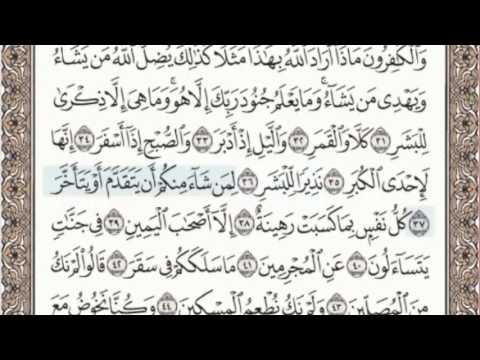 وَٱلْكَٰفِرُونَ مَاذَآ أَرَادَ ٱللَّهُ بِهَٰذَا مَثَلًا كَذَٰلِكَ يُضِلُّ ٱللَّهُ مَن يَشَآءُ
وَيَهْدِى مَن يَشَآءُ وَمَا يَعْلَمُ جُنُودَ رَبِّكَ إِلَّا هُوَ وَمَا هِىَ إِلَّا ذِكْرَىٰ
لِلْبَشَرِ ٣١ كَلَّا وَٱلْقَمَرِ ٣٢ وَٱلَّيْلِ إِذْ أَدْبَرَ ٣٣ وَٱلصُّبْحِ إِذَآ أَسْفَرَ ٣٤ إِنَّهَا
لَإِحْدَى ٱلْكُبَرِ ٣٥ نَذِيرًا لِّلْبَشَرِ ٣٦ لِمَن شَآءَ مِنكُمْ أَن يَتَقَدَّمَ أَوْ يَتَأَخَّرَ
٣٧ كُلُّ نَفْسٍۭ بِمَا كَسَبَتْ رَهِينَةٌ ٣٨ إِلَّآ أَصْحَٰبَ ٱلْيَمِينِ ٣٩ فِى جَنَّٰتٍ
يَتَسَآءَلُونَ ٤٠ عَنِ ٱلْمُجْرِمِينَ ٤١ مَا سَلَكَكُمْ فِى سَقَرَ ٤٢ قَالُوا۟ لَمْ نَكُ
مِنَ ٱلْمُصَلِّينَ ٤٣ وَلَمْ نَكُ نُطْعِمُ ٱلْمِسْكِينَ ٤٤ وَكُنَّا نَخُوضُ مَعَ